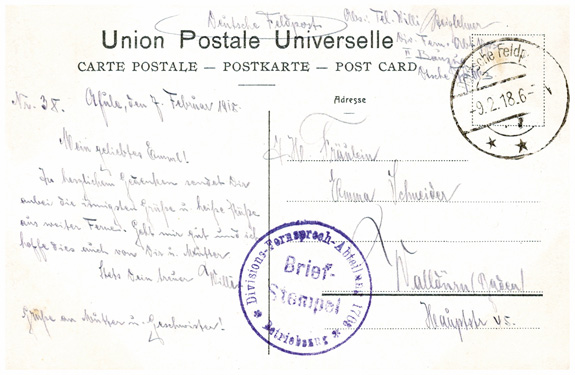 Deutsche Feldpost
Abs: Tel. Willi
Union Postale Universelle
CARTE POSTALE — POSTKARTE — POST CARD
9.2.18.6-
Nr. 38. Afula, den 7. Februar 1918.
Adresse
Mein geliebtes Emmel!
In herzlichem Gedenken sendet Dir
anbei die innigsten Grüße u. heiße Küsse
aus weiter Ferne. Geht mir gut und ich
hoffe dies auch von Dir u. Mutter
Stets Dein treuer Willi
Grüße an Mutter u. Geschwister!
Fräulein
Emma Schneider
Walldürn (Baden)
Hauptstr
Divisions-Fernsprech-Abteilung 1702
Brief-
Stempel
* Betriebszug *